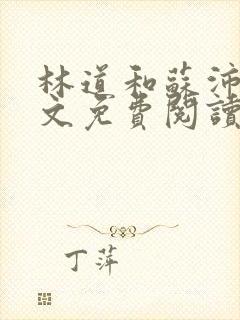 林道和蘇沛
文免費閱讀
丁萍